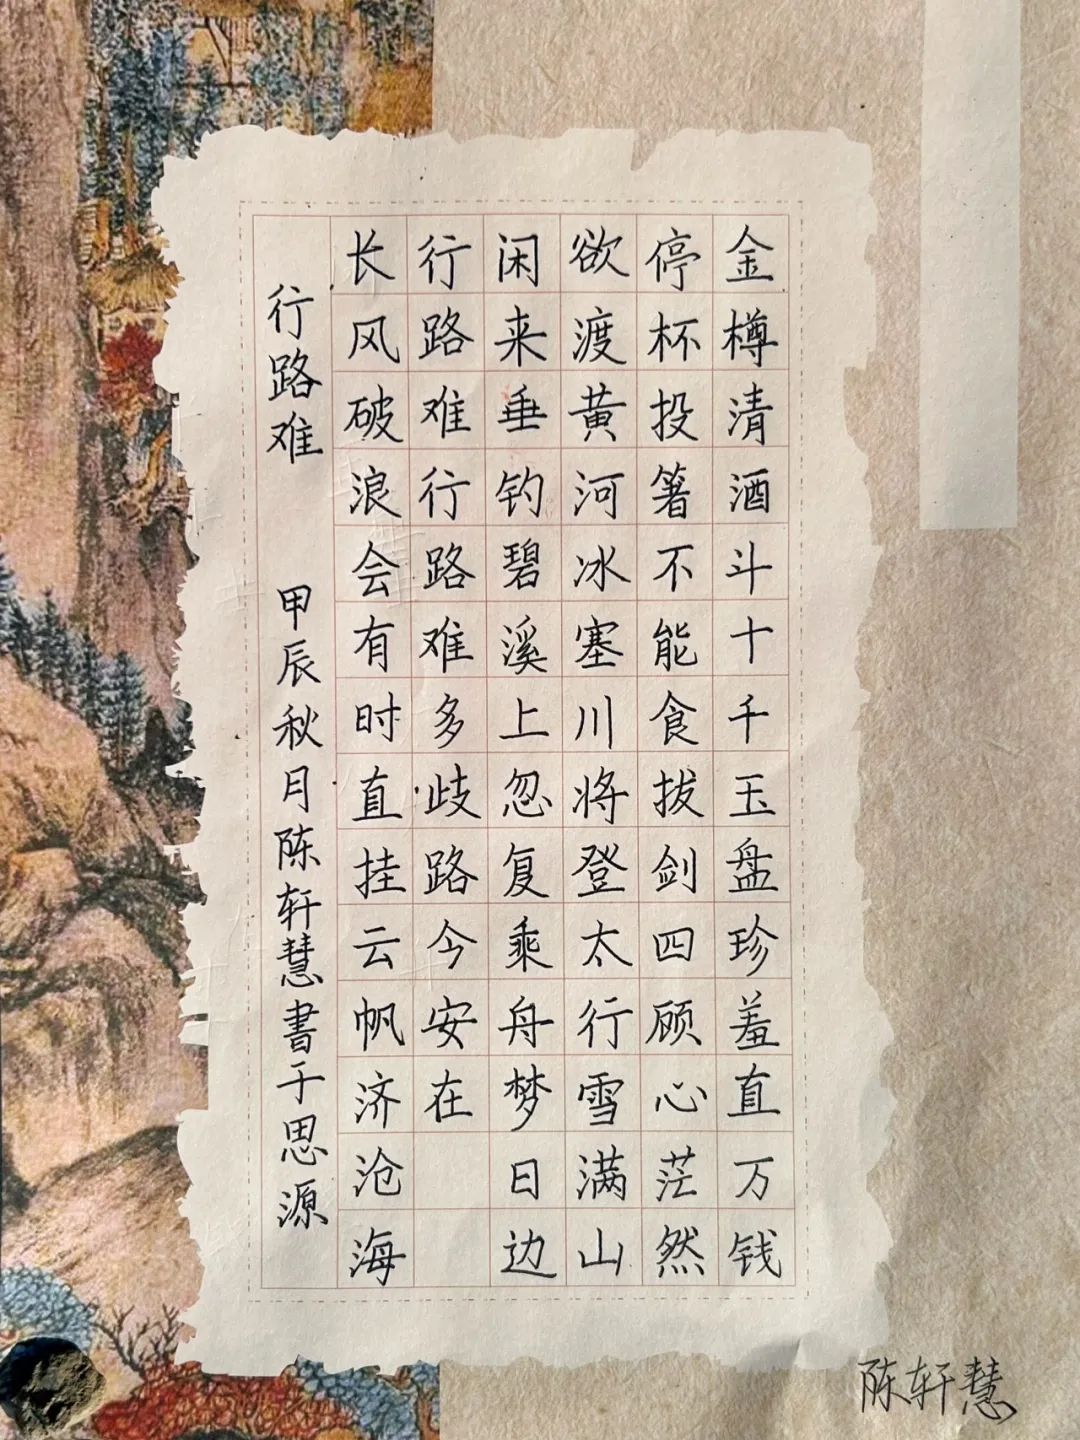 金樽清酒斗十千玉盘珍羞直万钱
停杯投箸不能食拔剑四顾心茫然
欲渡黄河冰塞川将登太行雪满山
闲来垂钓碧溪上忽复乘舟梦日边
行路难行路难多歧路今安在
长风破浪会有时直挂云帆济沧海
行路难 甲辰秋月陈轩慧書于思源
陈轩慧